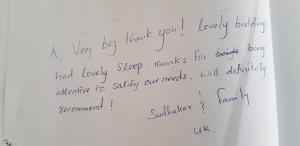 A Very big thank you! lovely bedding
had lovely sleep. Thanks for being
attentive to satisfy our needs. will definitely
recommend!
Sudhakar & Family
UK.